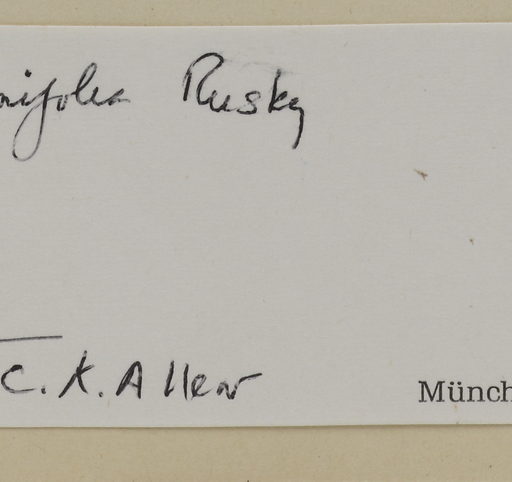 nifolia Rusby
C. K. Allen
Münch